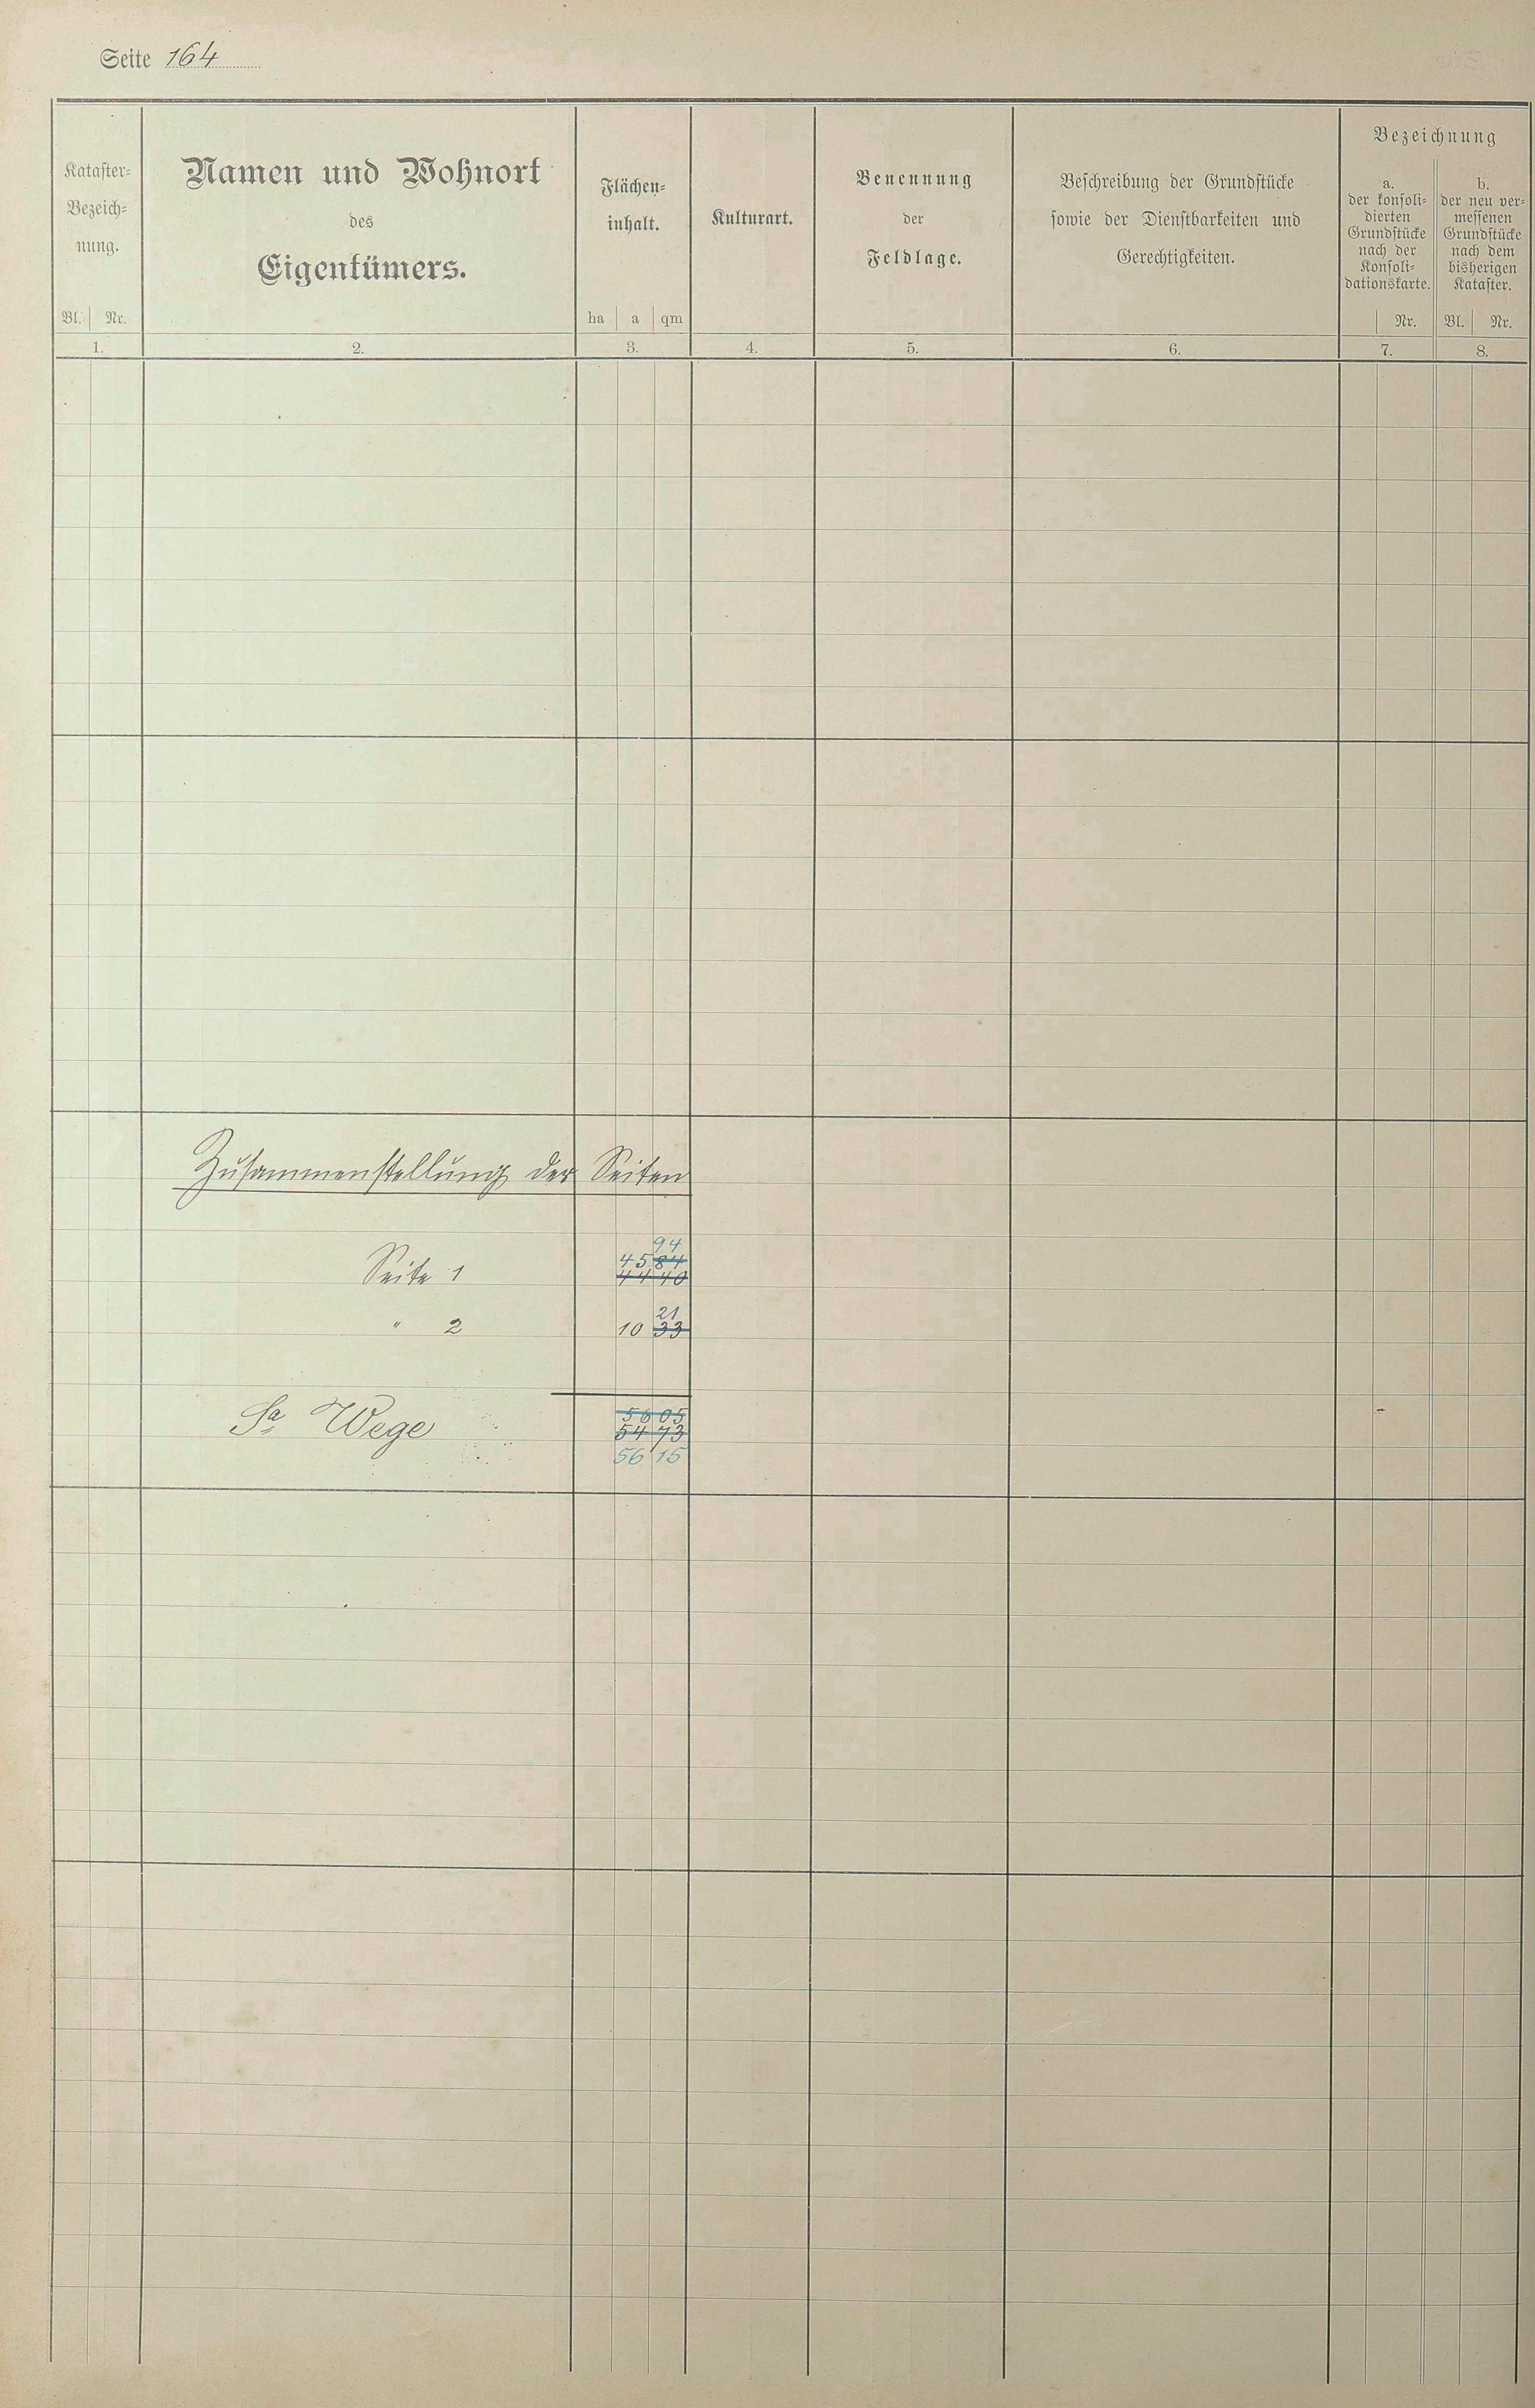 Seite 164
Kataster-
Bezeich-
nung.
Bl. Nr.
1.
Namen und Wohnort
des
Eigentümers.
2.
Flächen-
inhalt.
ha a qm
3.
Kulturart.
4.
Benennung
der
Feldlage.
5.
Beschreibung der Grundstücke
sowie der Dienstbarkeiten und
Gerechtigkeiten.
6.
Bezeichnung
a.
der konsoli-
dierten
Grundstücke
nach der
Konsoli-
dationskarte.
Nr.
7.
b.
der neu ver-
messenen
Grundstücke
nach dem
bisherigen
Kataster.
Bl. Nr.
8.
Zusammenstellung der Seiten
94
45 84
Seite 1 44 40
21
" 2 10 33
56 05
Sa Wege 54 73
56 15